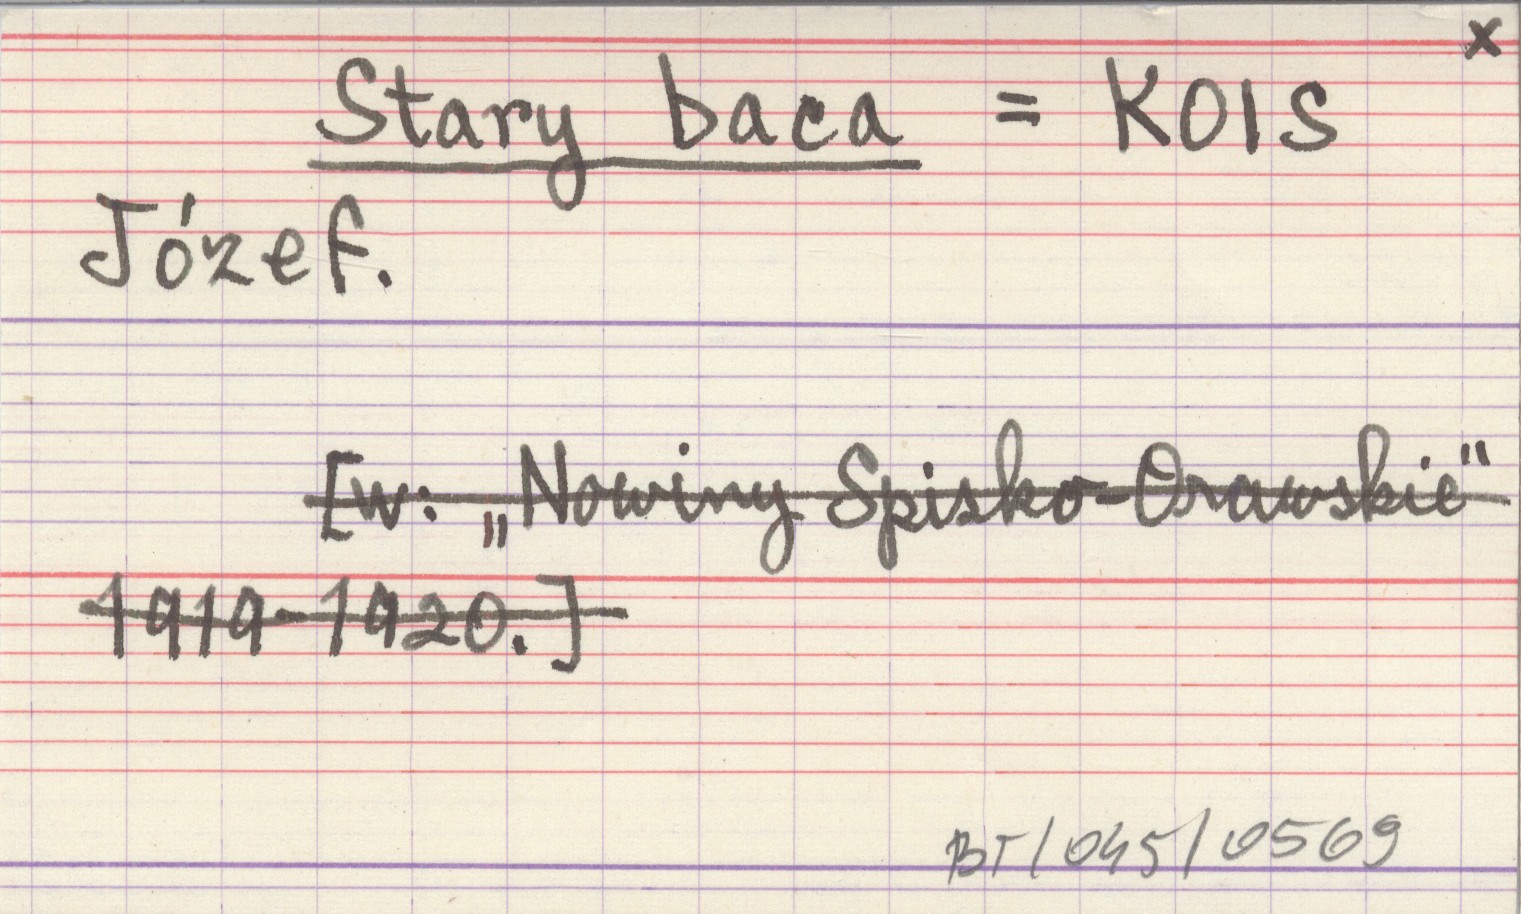 x
Stary baca = KOIS
Józef.
[w: „Nowiny Spisko-Orawskie"
1919-1920.]
BT/045/0569